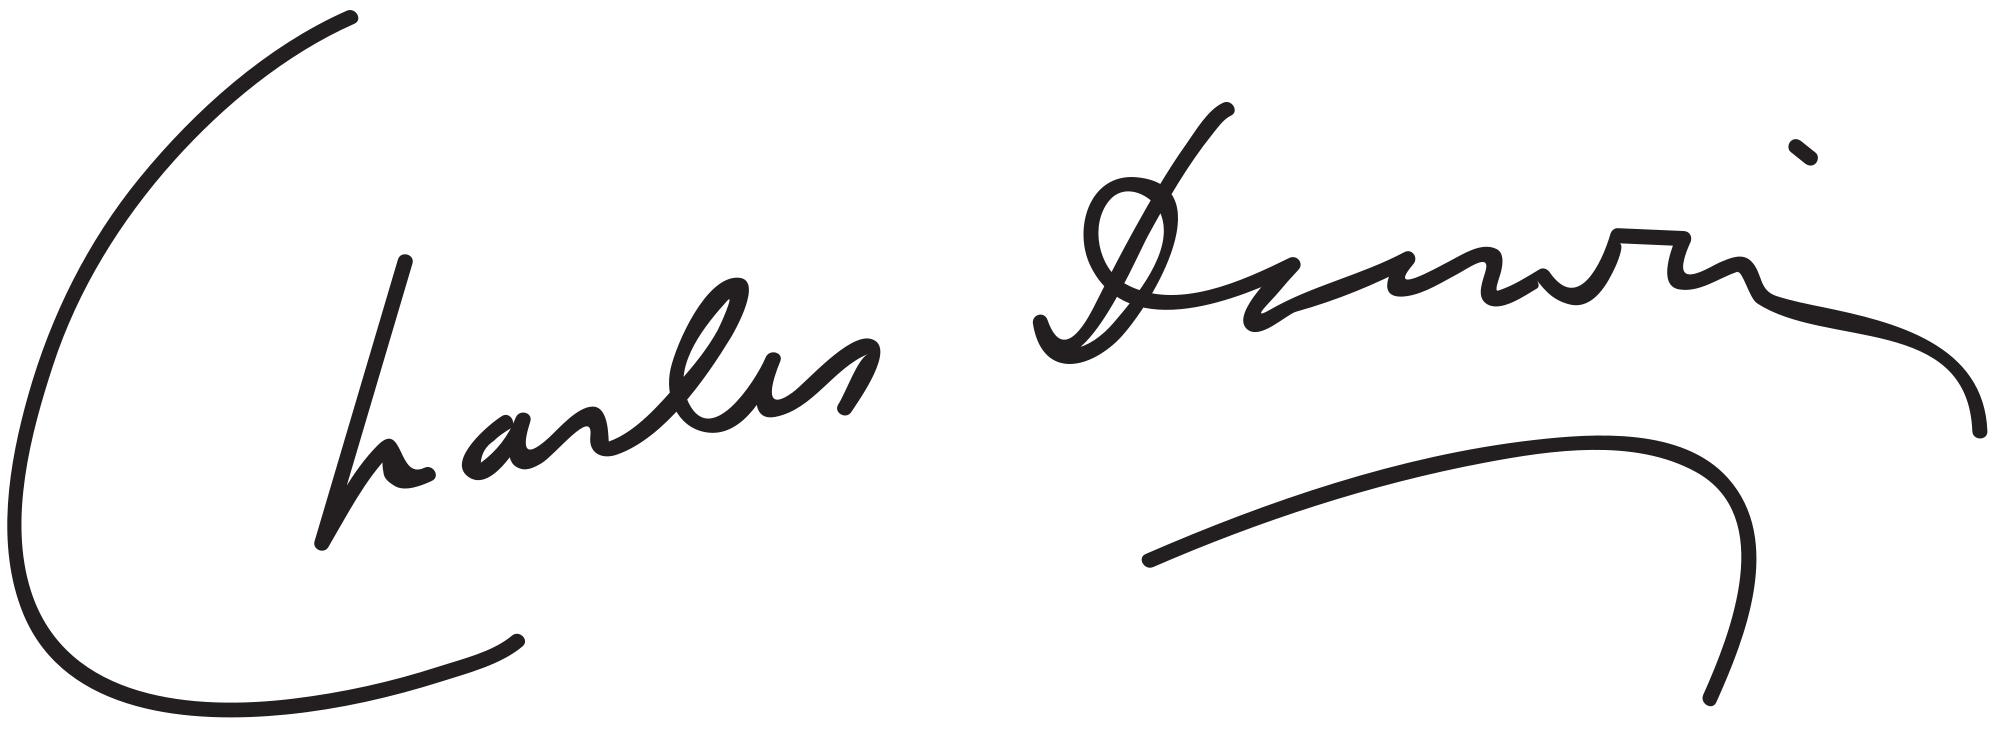 Charles Darwin